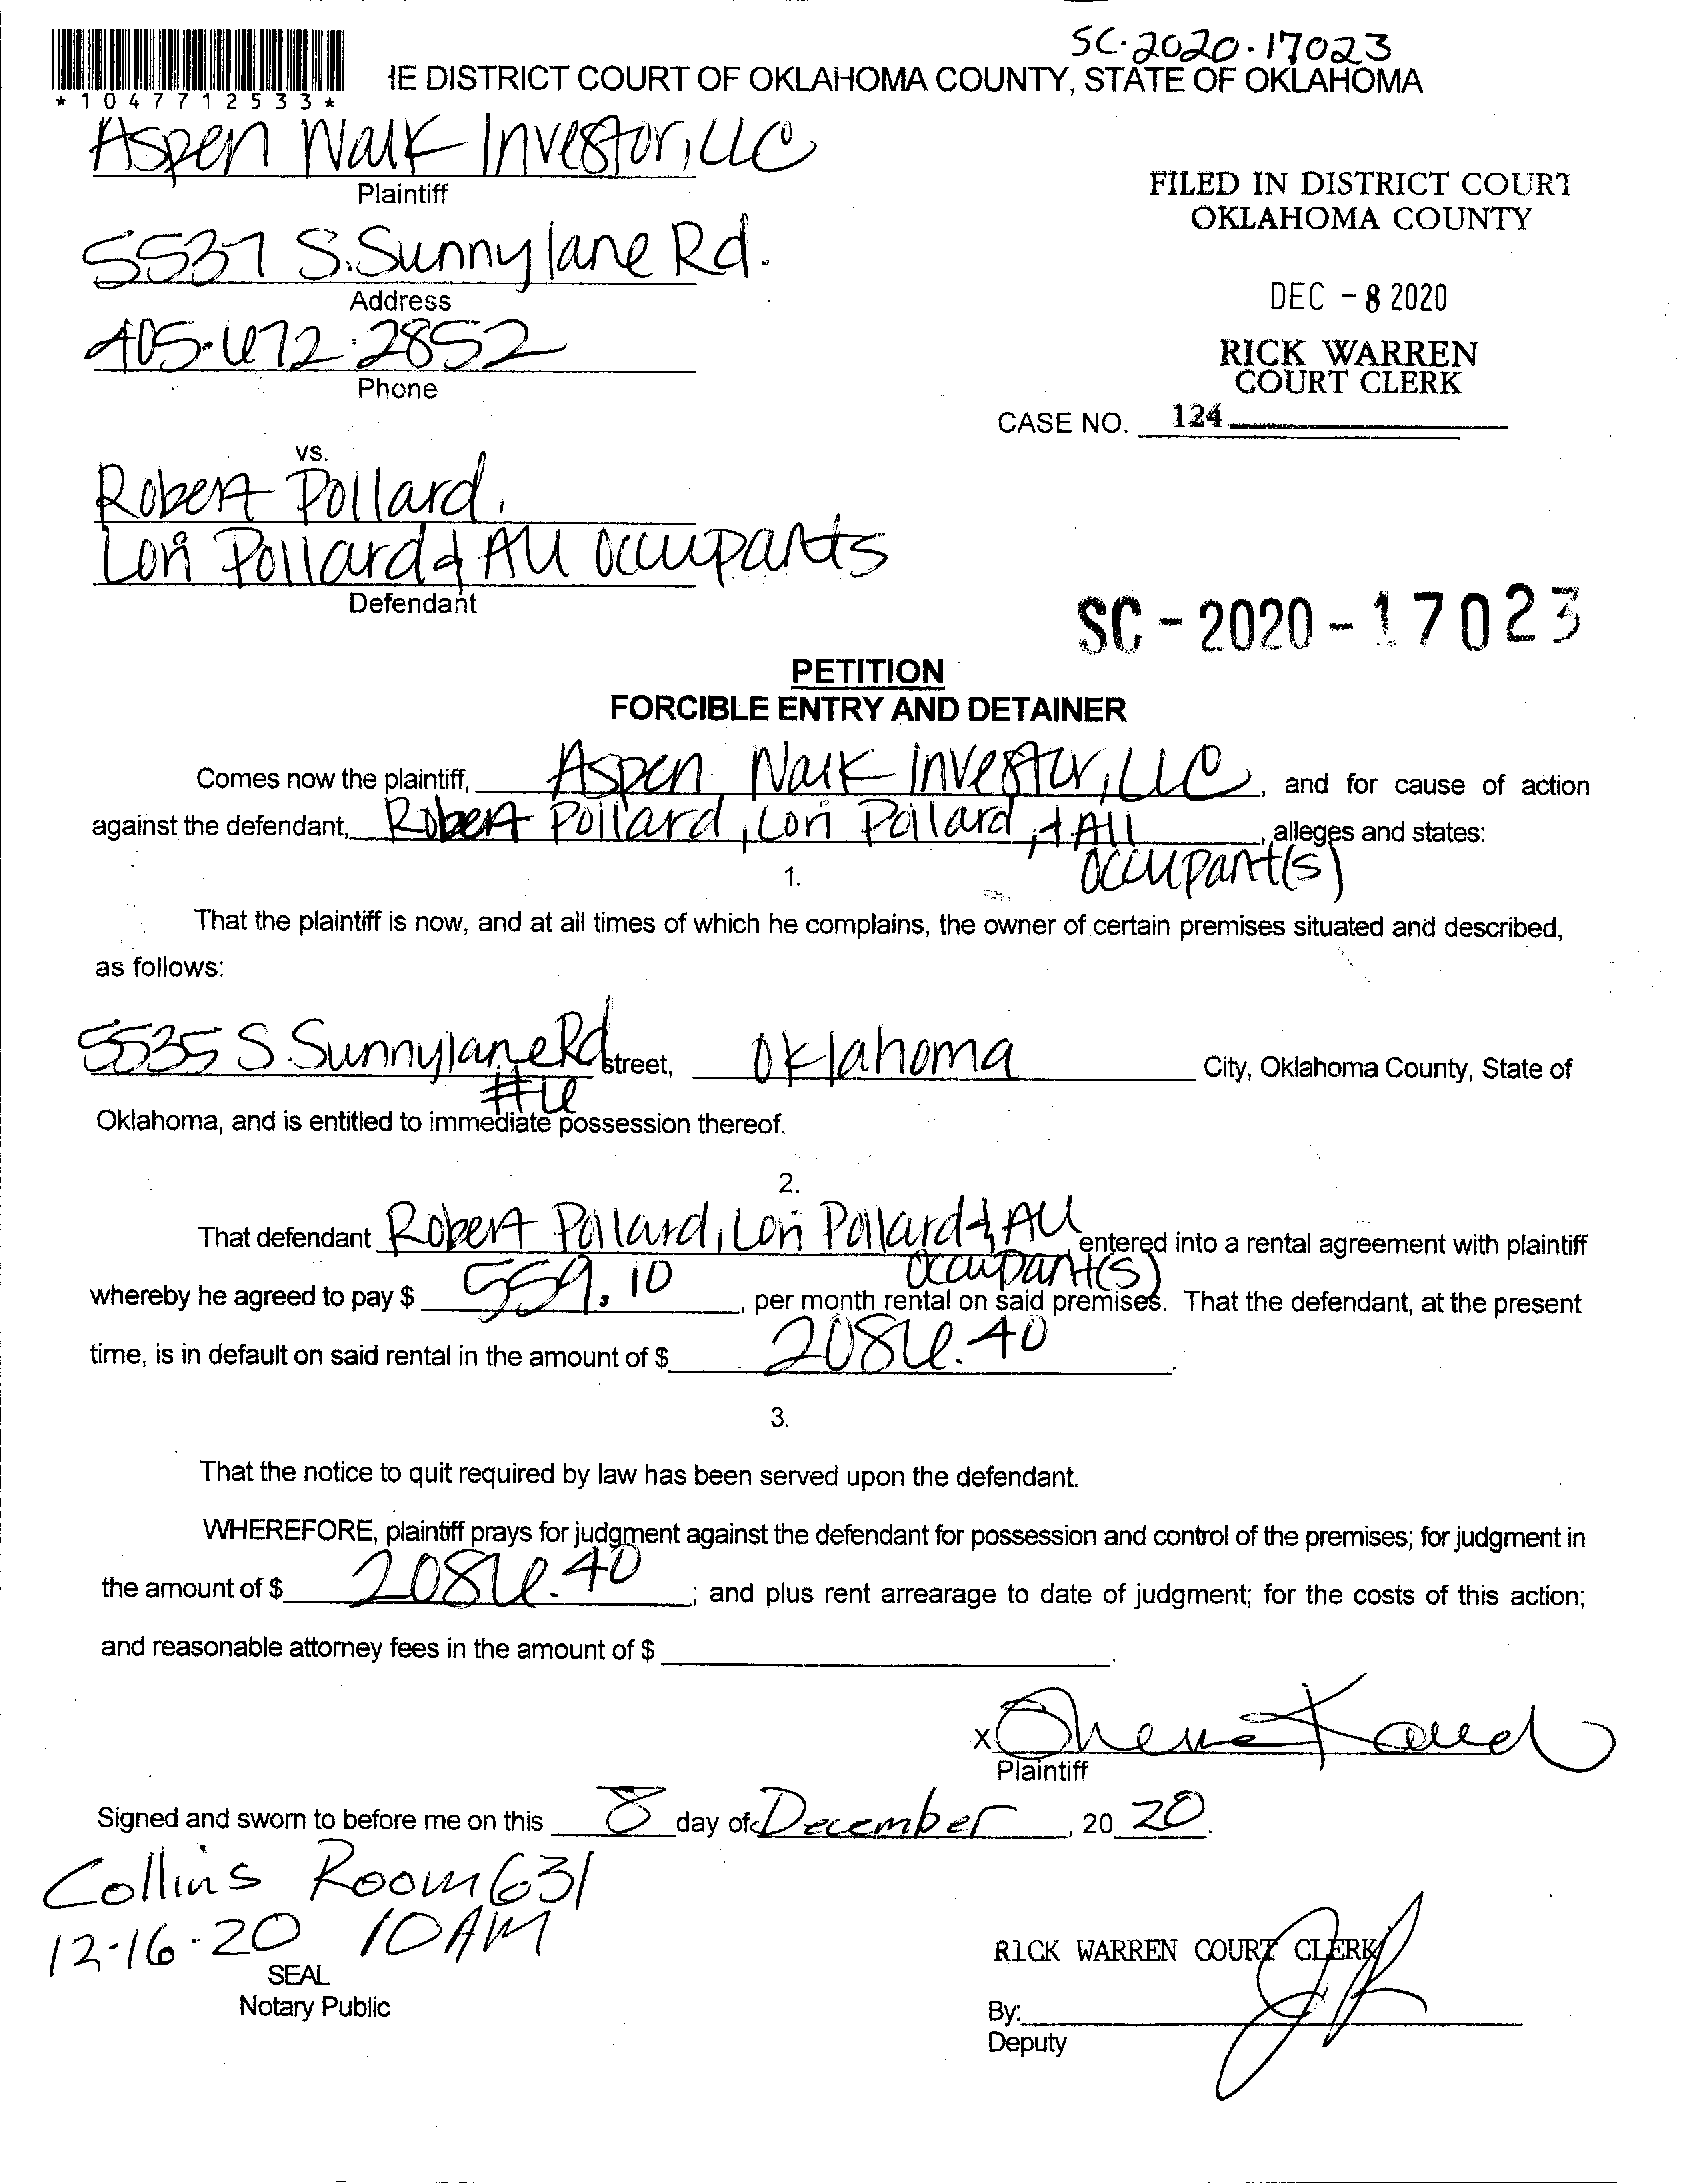 SC-2020-17023
*1047712533*
IE DISTRICT COURT OF OKLAHOMA COUNTY, STATE OF OKLAHOMA
Aspen Walk Investor, LLC
Plaintiff
FILED IN DISTRICT COURT
OKLAHOMA COUNTY
5537 S. Sunnylane Rd.
Address
DEC - 8 2020
405-672-2852
Phone
RICK WARREN
COURT CLERK
CASE NO. 124
vs.
Robert Pollard,
Lori Pollard & All occupants
Defendant
SC - 2020 - 17023
PETITION
FORCIBLE ENTRY AND DETAINER
Comes now the plaintiff, Aspen Walk Investor, LLC, and for cause of action
against the defendant, Robert Pollard, Lori Pollard, & All occupant(s), alleges and states:
1.
That the plaintiff is now, and at all times of which he complains, the owner of certain premises situated and described,
as follows:
5535 S. Sunnylane Rd #6 street, Oklahoma City, Oklahoma County, State of
Oklahoma, and is entitled to immediate possession thereof.
2.
That defendant Robert Pollard, Lori Pollard & All occupant(s) entered into a rental agreement with plaintiff
whereby he agreed to pay $ 559.10, per month rental on said premises. That the defendant, at the present
time, is in default on said rental in the amount of $ 2086.40.
3.
That the notice to quit required by law has been served upon the defendant.
WHEREFORE, plaintiff prays for judgment against the defendant for possession and control of the premises; for judgment in
the amount of $ 2086.40; and plus rent arrearage to date of judgment; for the costs of this action;
and reasonable attorney fees in the amount of $
x
Plaintiff
Signed and sworn to before me on this 8 day of December, 20 20.
Collins Room 631
12-16-20 10AM
SEAL
Notary Public
RICK WARREN COURT CLERK
By:
Deputy